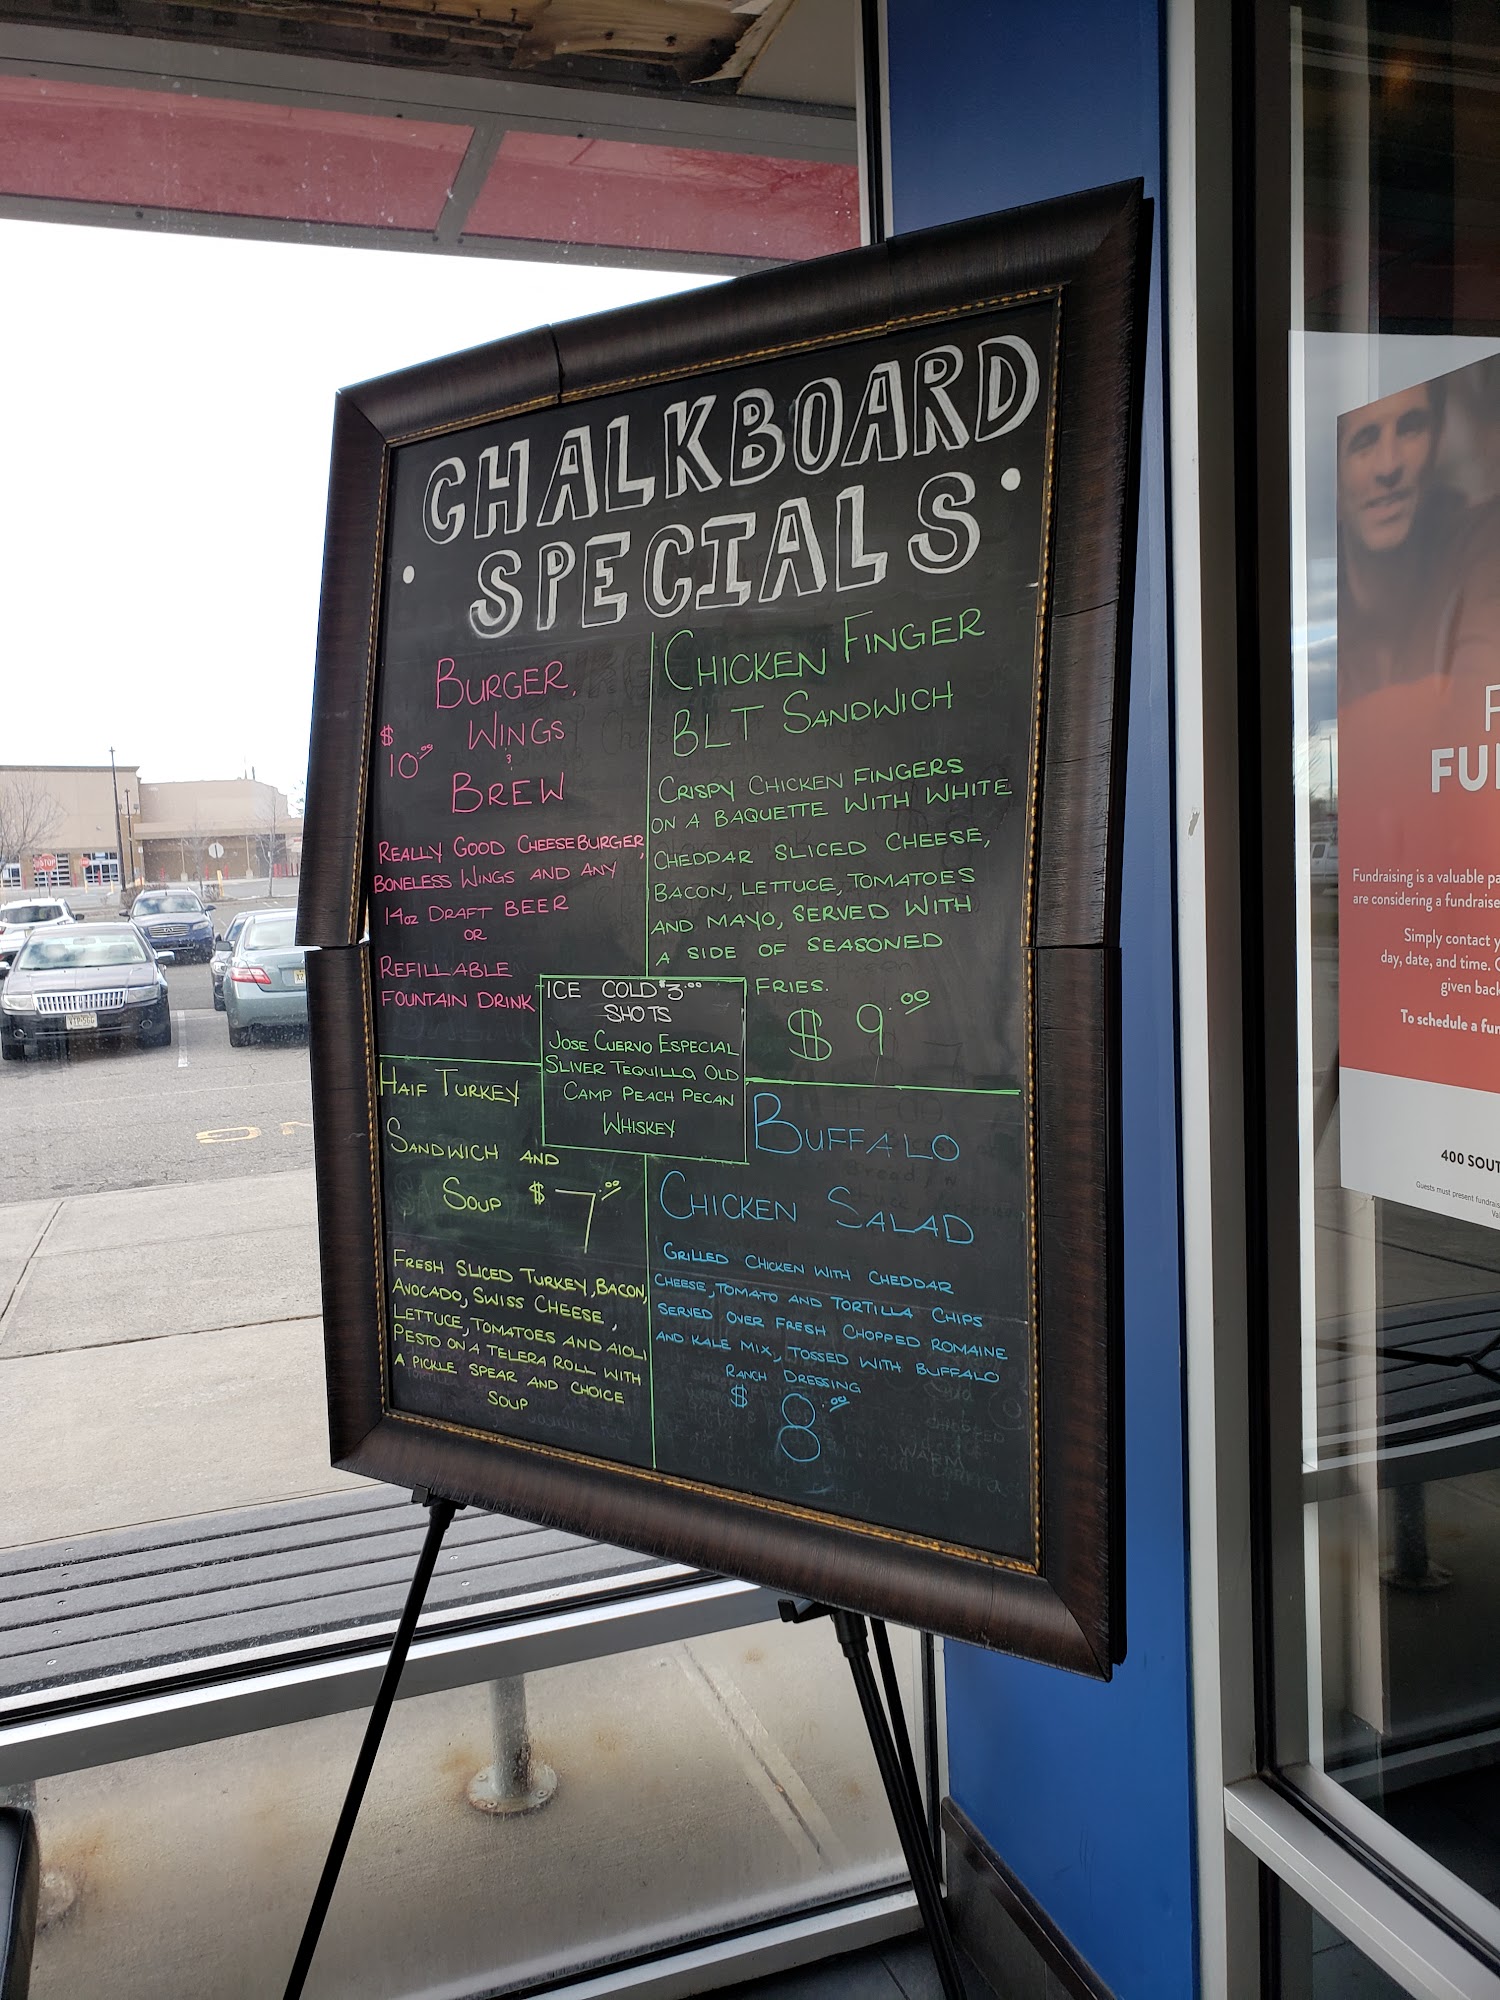 CHALKBOARD
SPECIALS
BURGER,
WINGS
&
BREW
$
10.00
REALLY GOOD CHEESEBURGER,
BONELESS WINGS AND ANY
14oz DRAFT BEER
OR
REFILLABLE
FOUNTAIN DRINK
CHICKEN FINGER
BLT SANDWICH
CRISPY CHICKEN FINGERS
ON A BAQUETTE WITH WHITE
CHEDDAR SLICED CHEESE,
BACON, LETTUCE, TOMATOES
AND MAYO, SERVED WITH
A SIDE OF SEASONED
FRIES.
$ 9.00
ICE COLD $3.00
SHOTS
JOSE CUERVO ESPECIAL
SLIVER TEQUILLA, OLD
CAMP PEACH PECAN
WHISKEY
HAIF TURKEY
SANDWICH AND
SOUP $7.00
FRESH SLICED TURKEY, BACON,
AVOCADO, SWISS CHEESE,
LETTUCE, TOMATOES AND AIOLI
PESTO ON A TELERA ROLL WITH
A PICKLE SPEAR AND CHOICE
SOUP
BUFFALO
CHICKEN SALAD
GRILLED CHICKEN WITH CHEDDAR
CHEESE, TOMATO AND TORTILLA CHIPS
SERVED OVER FRESH CHOPPED ROMAINE
AND KALE MIX, TOSSED WITH BUFFALO
RANCH DRESSING
$ 8.00
STOP
F
FU
Fundraising is a valuable pa
are considering a fundraise
Simply contact y
day, date, and time.
given back
To schedule a fun
400 SOUT
Guests must present fundrai